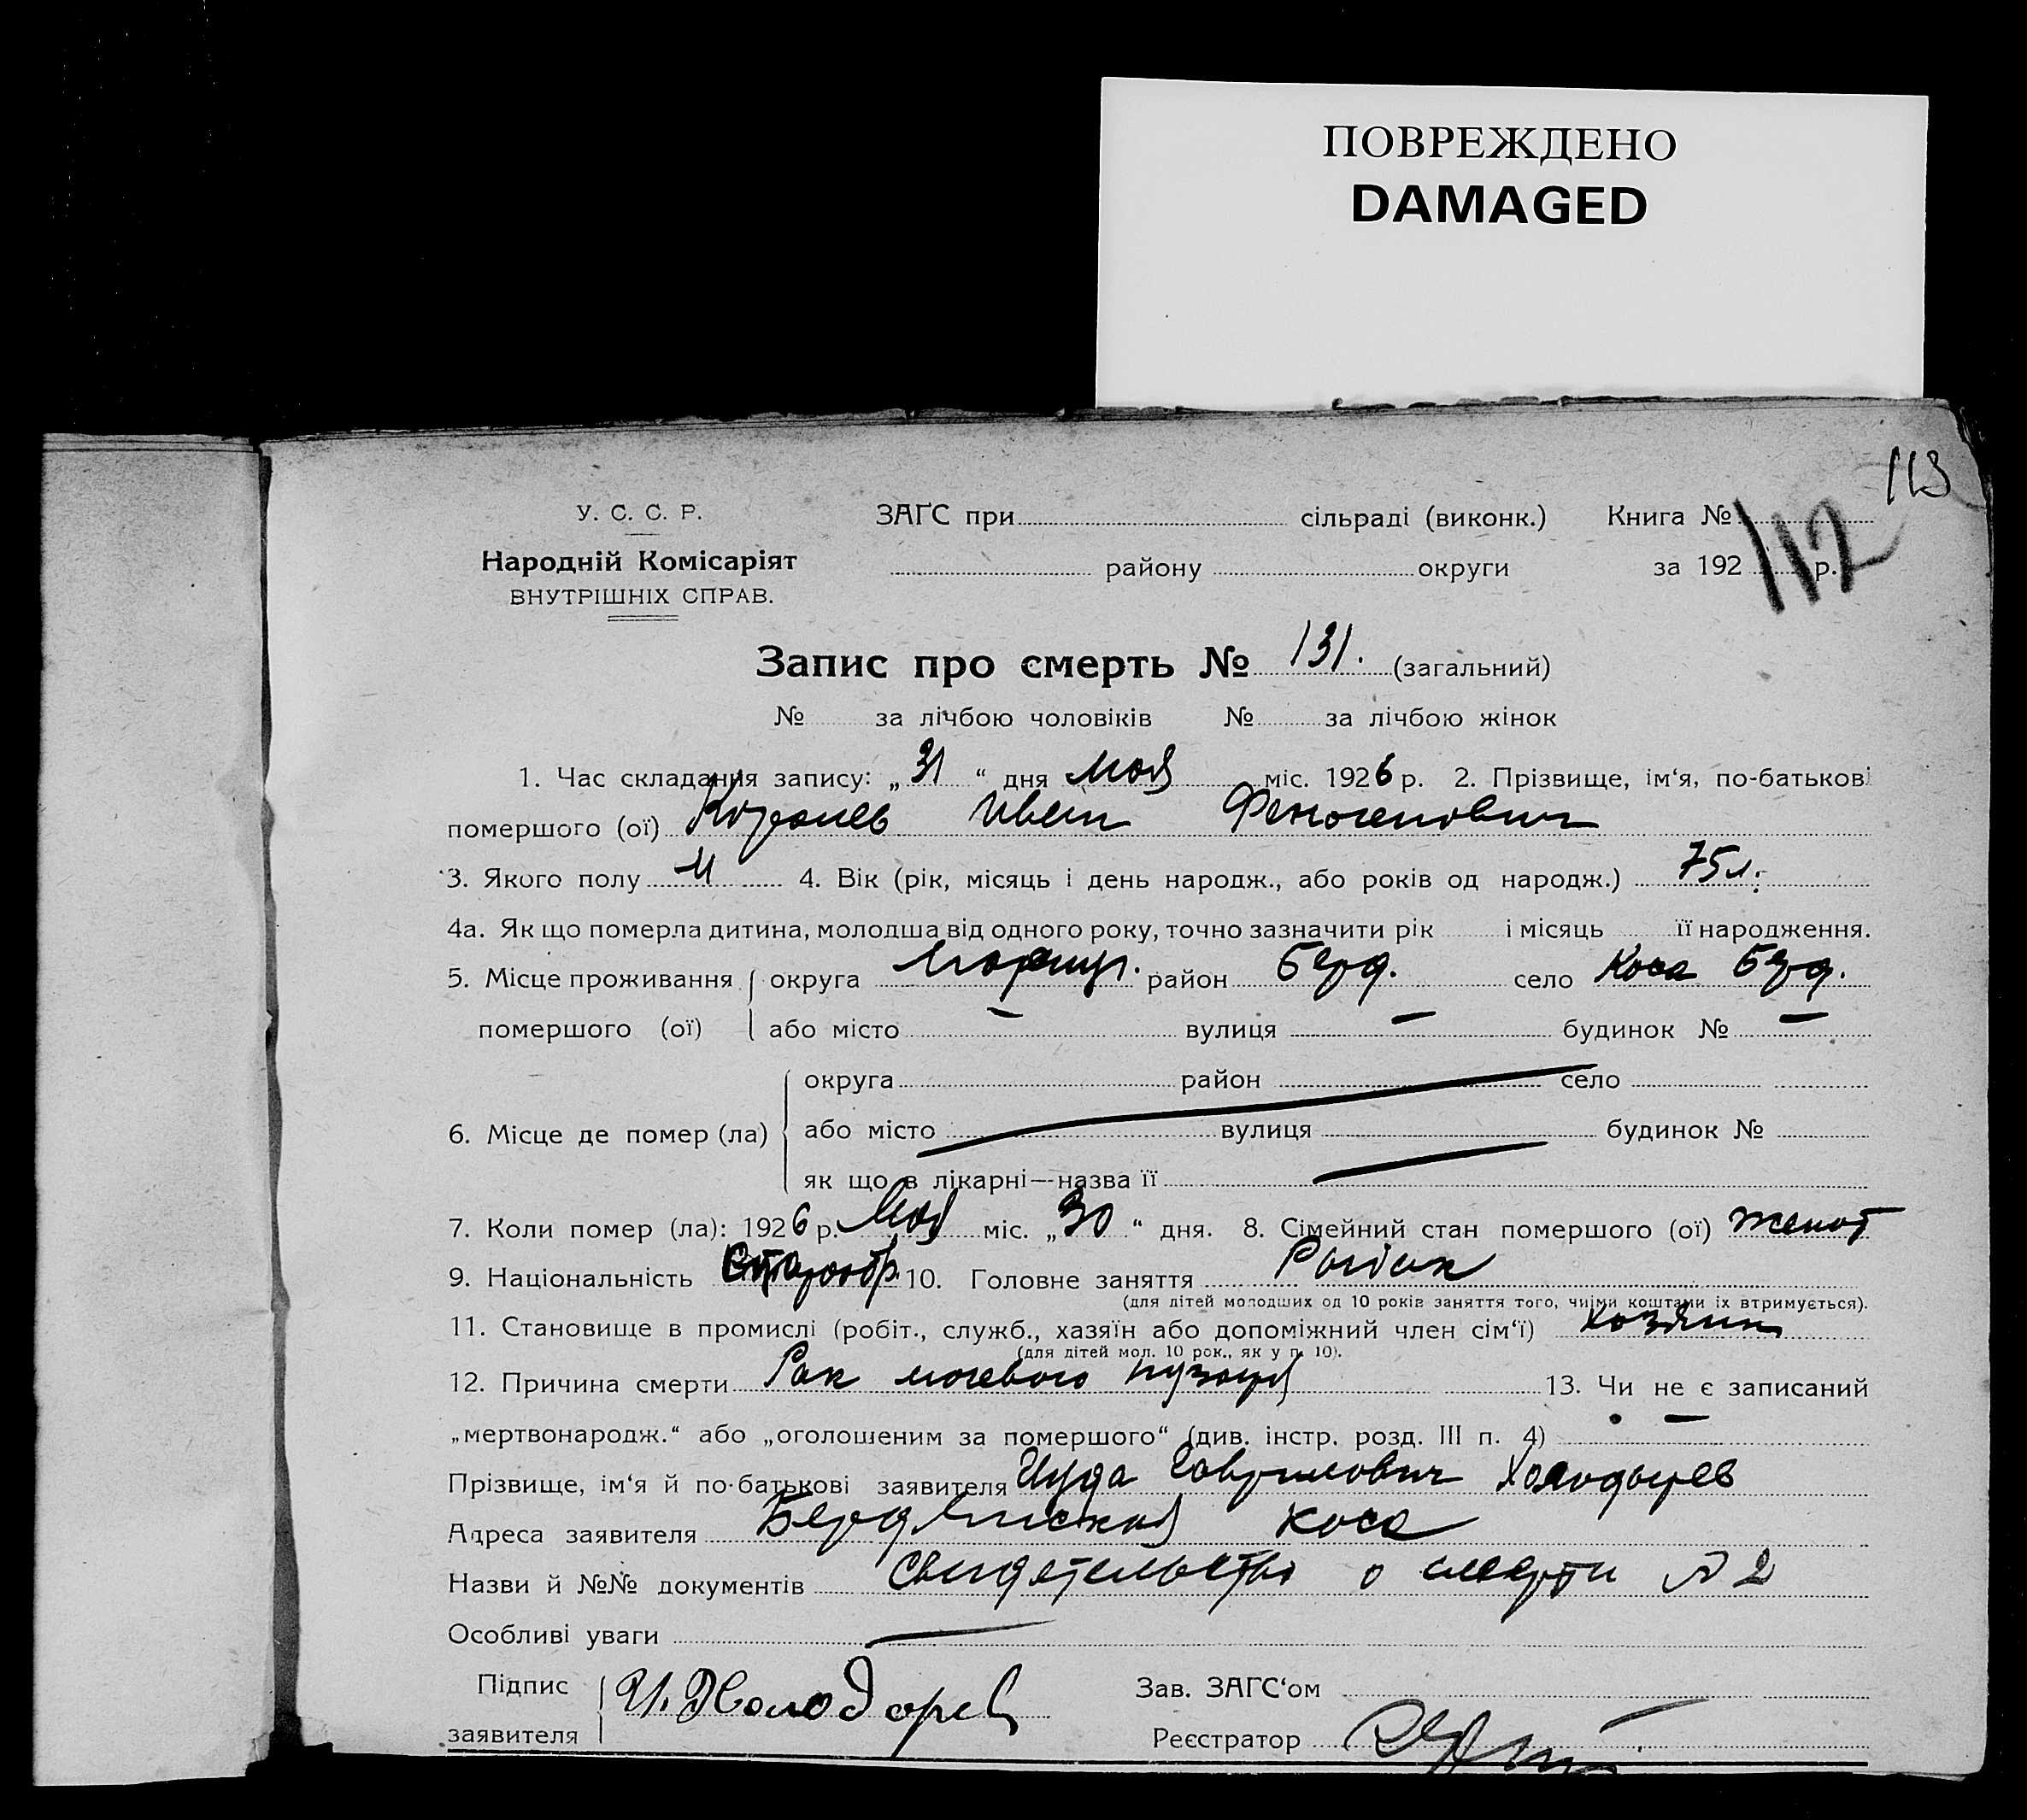 ПОВРЕЖДЕНО
DAMAGED
113
У. С. С. Р.
ЗАГС при сільраді (виконк.) Книга № 112
Народній Комісаріят
району округи за 192 р.
ВНУТРІШНІХ СПРАВ.
Запис про смерть № 131. (загальний)
№ за лічбою чоловіків № за лічбою жінок
1. Час складання запису: „31“ дня мая міс. 1926 р. 2. Прізвище, ім‘я, по-батькові
помершого (ої) Королев Иван Феногенович
3. Якого полу М 4. Вік (рік, місяць і день народж., або років од народж.) 75 л.
4а. Як що померла дитина, молодша від одного року, точно зазначити рік і місяць її народження.
5. Місце проживання округа Мариуп. район Берд. село Коса Берд.
помершого (ої) або місто — вулиця — будинок № —
округа район село
6. Місце де помер (ла) або місто вулиця будинок №
як що в лікарні—назва її
7. Коли помер (ла): 1926 р. Мая міс. „30“ дня. 8. Сімейний стан помершого (ої) женат
9. Національність Старообр. 10. Головне заняття Рыбак
(для дітей молодших од 10 років заняття того, чиїми коштами їх втримується).
11. Становище в промислі (робіт., служб., хазяїн або допоміжний член сім‘ї) хозяин
(для дітей мол. 10 рок., як у п. 10).
12. Причина смерти Рак мочевого пузыря 13. Чи не є записаний
„мертвонародж.“ або „оголошеним за помершого“ (див. інстр. розд. III п. 4) —
Прізвище, ім‘я й по-батькові заявителя Гаврилович Холодарев
Адреса заявителя Бердянская коса
Назви й №№ документів свидетельство о смерти № 2
Особливі уваги —
Підпис И. Холодарев Зав. ЗАГС‘ом
заявителя Реєстратор